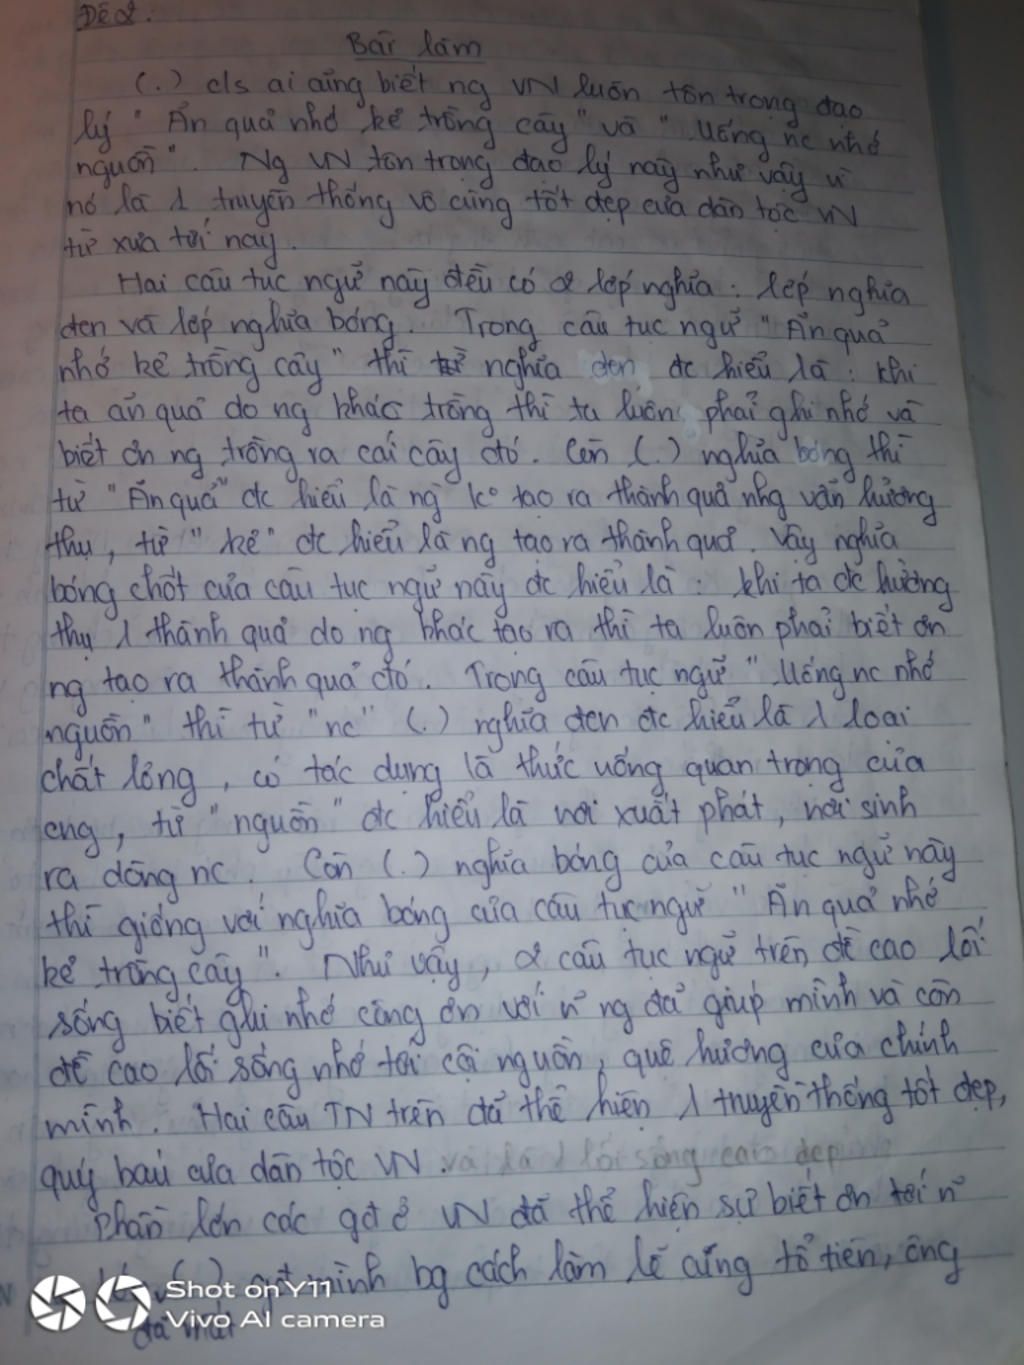 Đề 2:
Bài làm
(.) c/s ai cũng biết ng VN luôn tôn trọng đạo
lý "Ăn quả nhớ kẻ trồng cây" và "Uống nc nhớ
nguồn". Ng VN tôn trọng đạo lý này như vậy vì
nó là 1 truyền thống vô cùng tốt đẹp của dân tộc VN
từ xưa tới nay.
Hai câu tục ngữ này đều có 2 lớp nghĩa: lớp nghĩa
đen và lớp nghĩa bóng. Trong câu tục ngữ "Ăn quả
nhớ kẻ trồng cây" thì nghĩa đen đc hiểu là: khi
ta ăn quả do ng khác trồng thì ta luôn phải ghi nhớ và
biết ơn ng trồng ra cái cây đó. Còn (.) nghĩa bóng thì
từ "Ăn quả" đc hiểu là ng k° tạo ra thành quả nhg vẫn hưởng
thụ, từ "kẻ" đc hiểu là ng tạo ra thành quả. Vậy nghĩa
bóng chốt của câu tục ngữ này đc hiểu là: khi ta đc hưởng
thụ 1 thành quả do ng khác tạo ra thì ta luôn phải biết ơn
ng tạo ra thành quả đó. Trong câu tục ngữ "Uống nc nhớ
nguồn" thì từ "nc" (.) nghĩa đen đc hiểu là 1 loại
chất lỏng, có tác dụng là thức uống quan trọng của
cng, từ "nguồn" đc hiểu là nơi xuất phát, nơi sinh
ra dòng nc. Còn (.) nghĩa bóng của câu tục ngữ này
thì giống với nghĩa bóng của câu tục ngữ "Ăn quả nhớ
kẻ trồng cây". Như vậy, 2 câu tục ngữ trên đề cao lối
sống biết ghi nhớ công ơn với n~ ng đã giúp mình và còn
đề cao lối sống nhớ tới cội nguồn, quê hương của chính
mình. Hai câu TN trên đã thể hiện 1 truyền thống tốt đẹp,
quý báu của dân tộc VN. và là 1 lối sống cao đẹp
Phần lớn các gđ ở VN đã thể hiện sự biết ơn tới n~
(.) gđ mình bg cách làm lễ cúng tổ tiên, ông
đã mất
Shot on Y11
Vivo AI camera